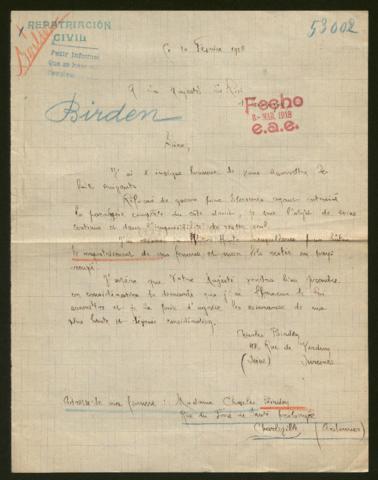 REPATRIACIÓN
CIVIL
Pedir informes
53002
Ce 10 Février 1918
A sa Majesté le Roi
Fecho
8-MAR.1918
e.a.e.
Birden
Sire,
J'ai l'insigne honneur de vous soumettre le
fait suivant
Réformé de guerre pour blessures ayant entrainé
la paralysie complète du côté droit, je suis l'objet de soins
continus et dans l'impossibilité de rester seul
le rapatriement de ma femme et mon fils restés en pays
occupé.
J'espère que Votre Majesté voudra bien prendre
en considération la demande que j'ai l'honneur de lui
soumettre et la prie d'agréer les assurances de ma
plus haute et respectueuse considération.
Charles Birden
48, Rue de Verdun
(Seine) Suresnes
Adresse de ma femme : Madame Charles Birden
Rue du
Charleville (Ardennes)